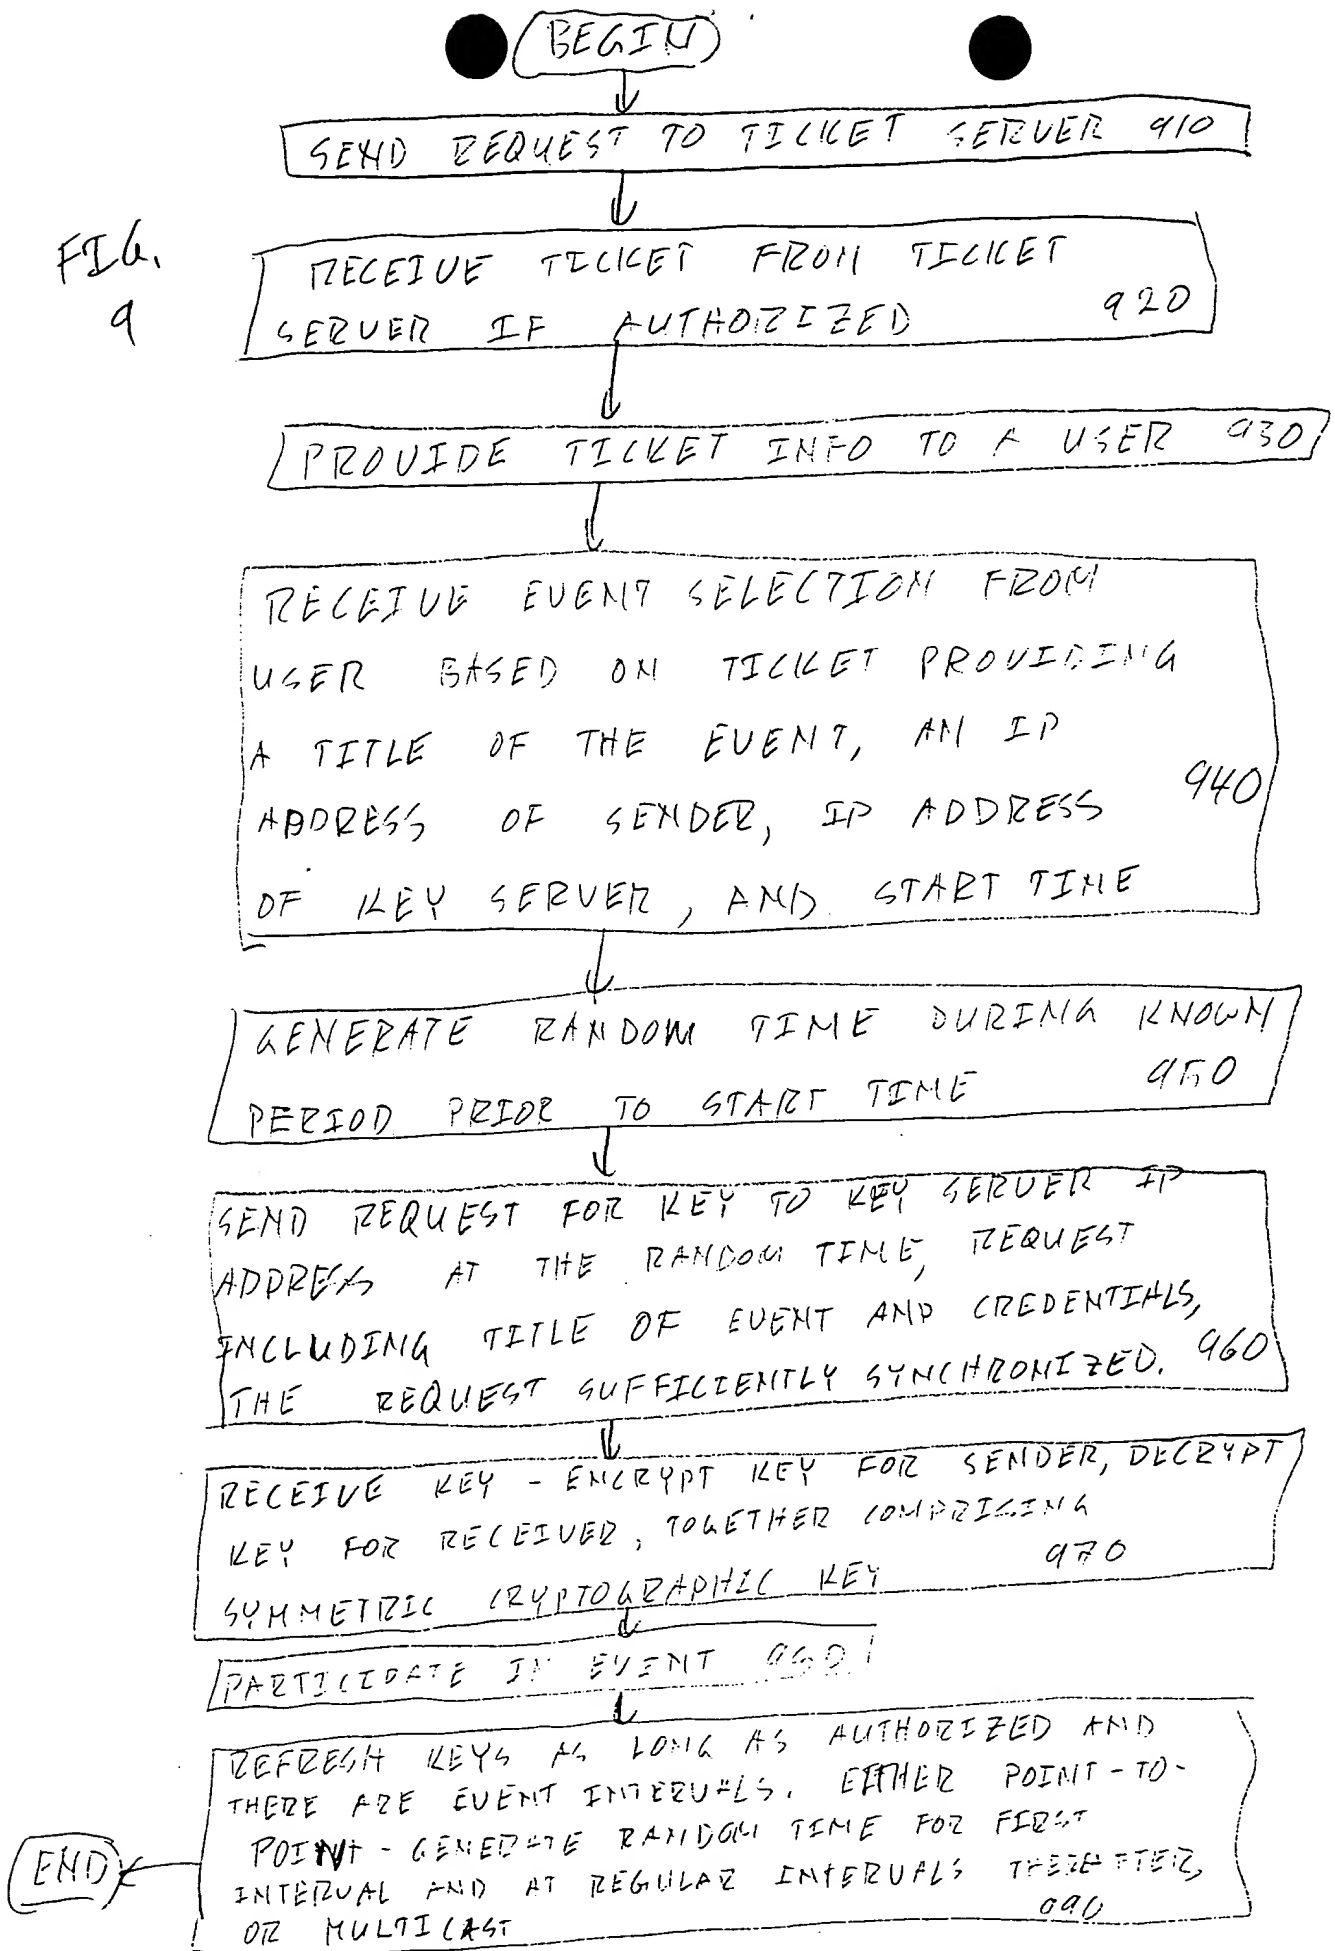 BEGIN
SEND REQUEST TO TICKET SERVER 910
FIG.
9
RECEIVE TICKET FROM TICKET
SERVER IF AUTHORIZED 920
PROVIDE TICKET INFO TO A USER 930
RECEIVE EVENT SELECTION FROM
USER BASED ON TICKET PROVIDING
A TITLE OF THE EVENT, AN IP
ADDRESS OF SENDER, IP ADDRESS
940
OF KEY SERVER, AND START TIME
GENERATE RANDOM TIME DURING KNOWN
PERIOD PRIOR TO START TIME 950
SEND REQUEST FOR KEY TO KEY SERVER IP
ADDRESS AT THE RANDOM TIME, REQUEST
INCLUDING TITLE OF EVENT AND CREDENTIALS,
THE REQUEST SUFFICIENTLY SYNCHRONIZED. 960
RECEIVE KEY - ENCRYPT KEY FOR SENDER, DECRYPT
KEY FOR RECEIVER, TOGETHER COMPRISING
SYMMETRIC CRYPTOGRAPHIC KEY 970
PARTICIPATE IN EVENT 980
REFRESH KEYS AS LONG AS AUTHORIZED AND
THERE ARE EVENT INTERVALS. EITHER POINT-TO-
POINT - GENERATE RANDOM TIME FOR FIRST
INTERVAL AND AT REGULAR INTERVALS THEREAFTER,
OR MULTICAST 990
END